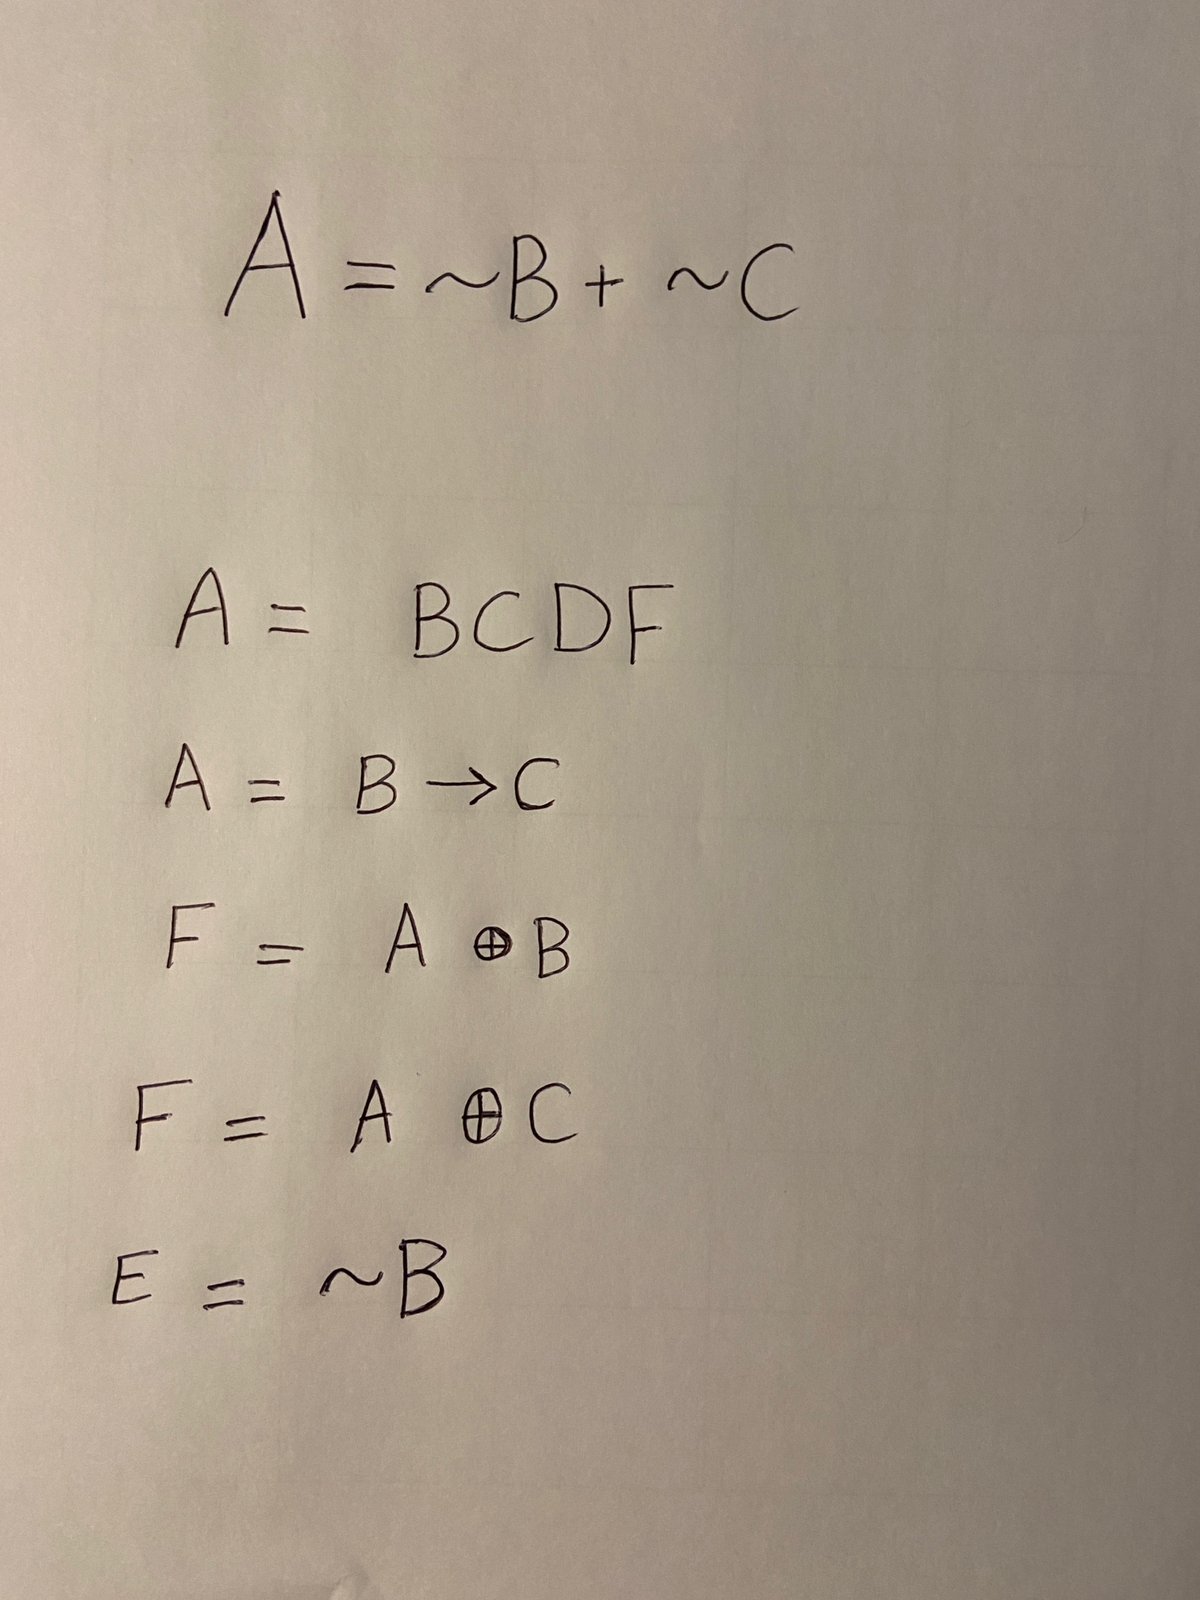 A = ~B + ~C
A = BCDF
A = B → C
F = A ⊕ B
F = A ⊕ C
E = ~B